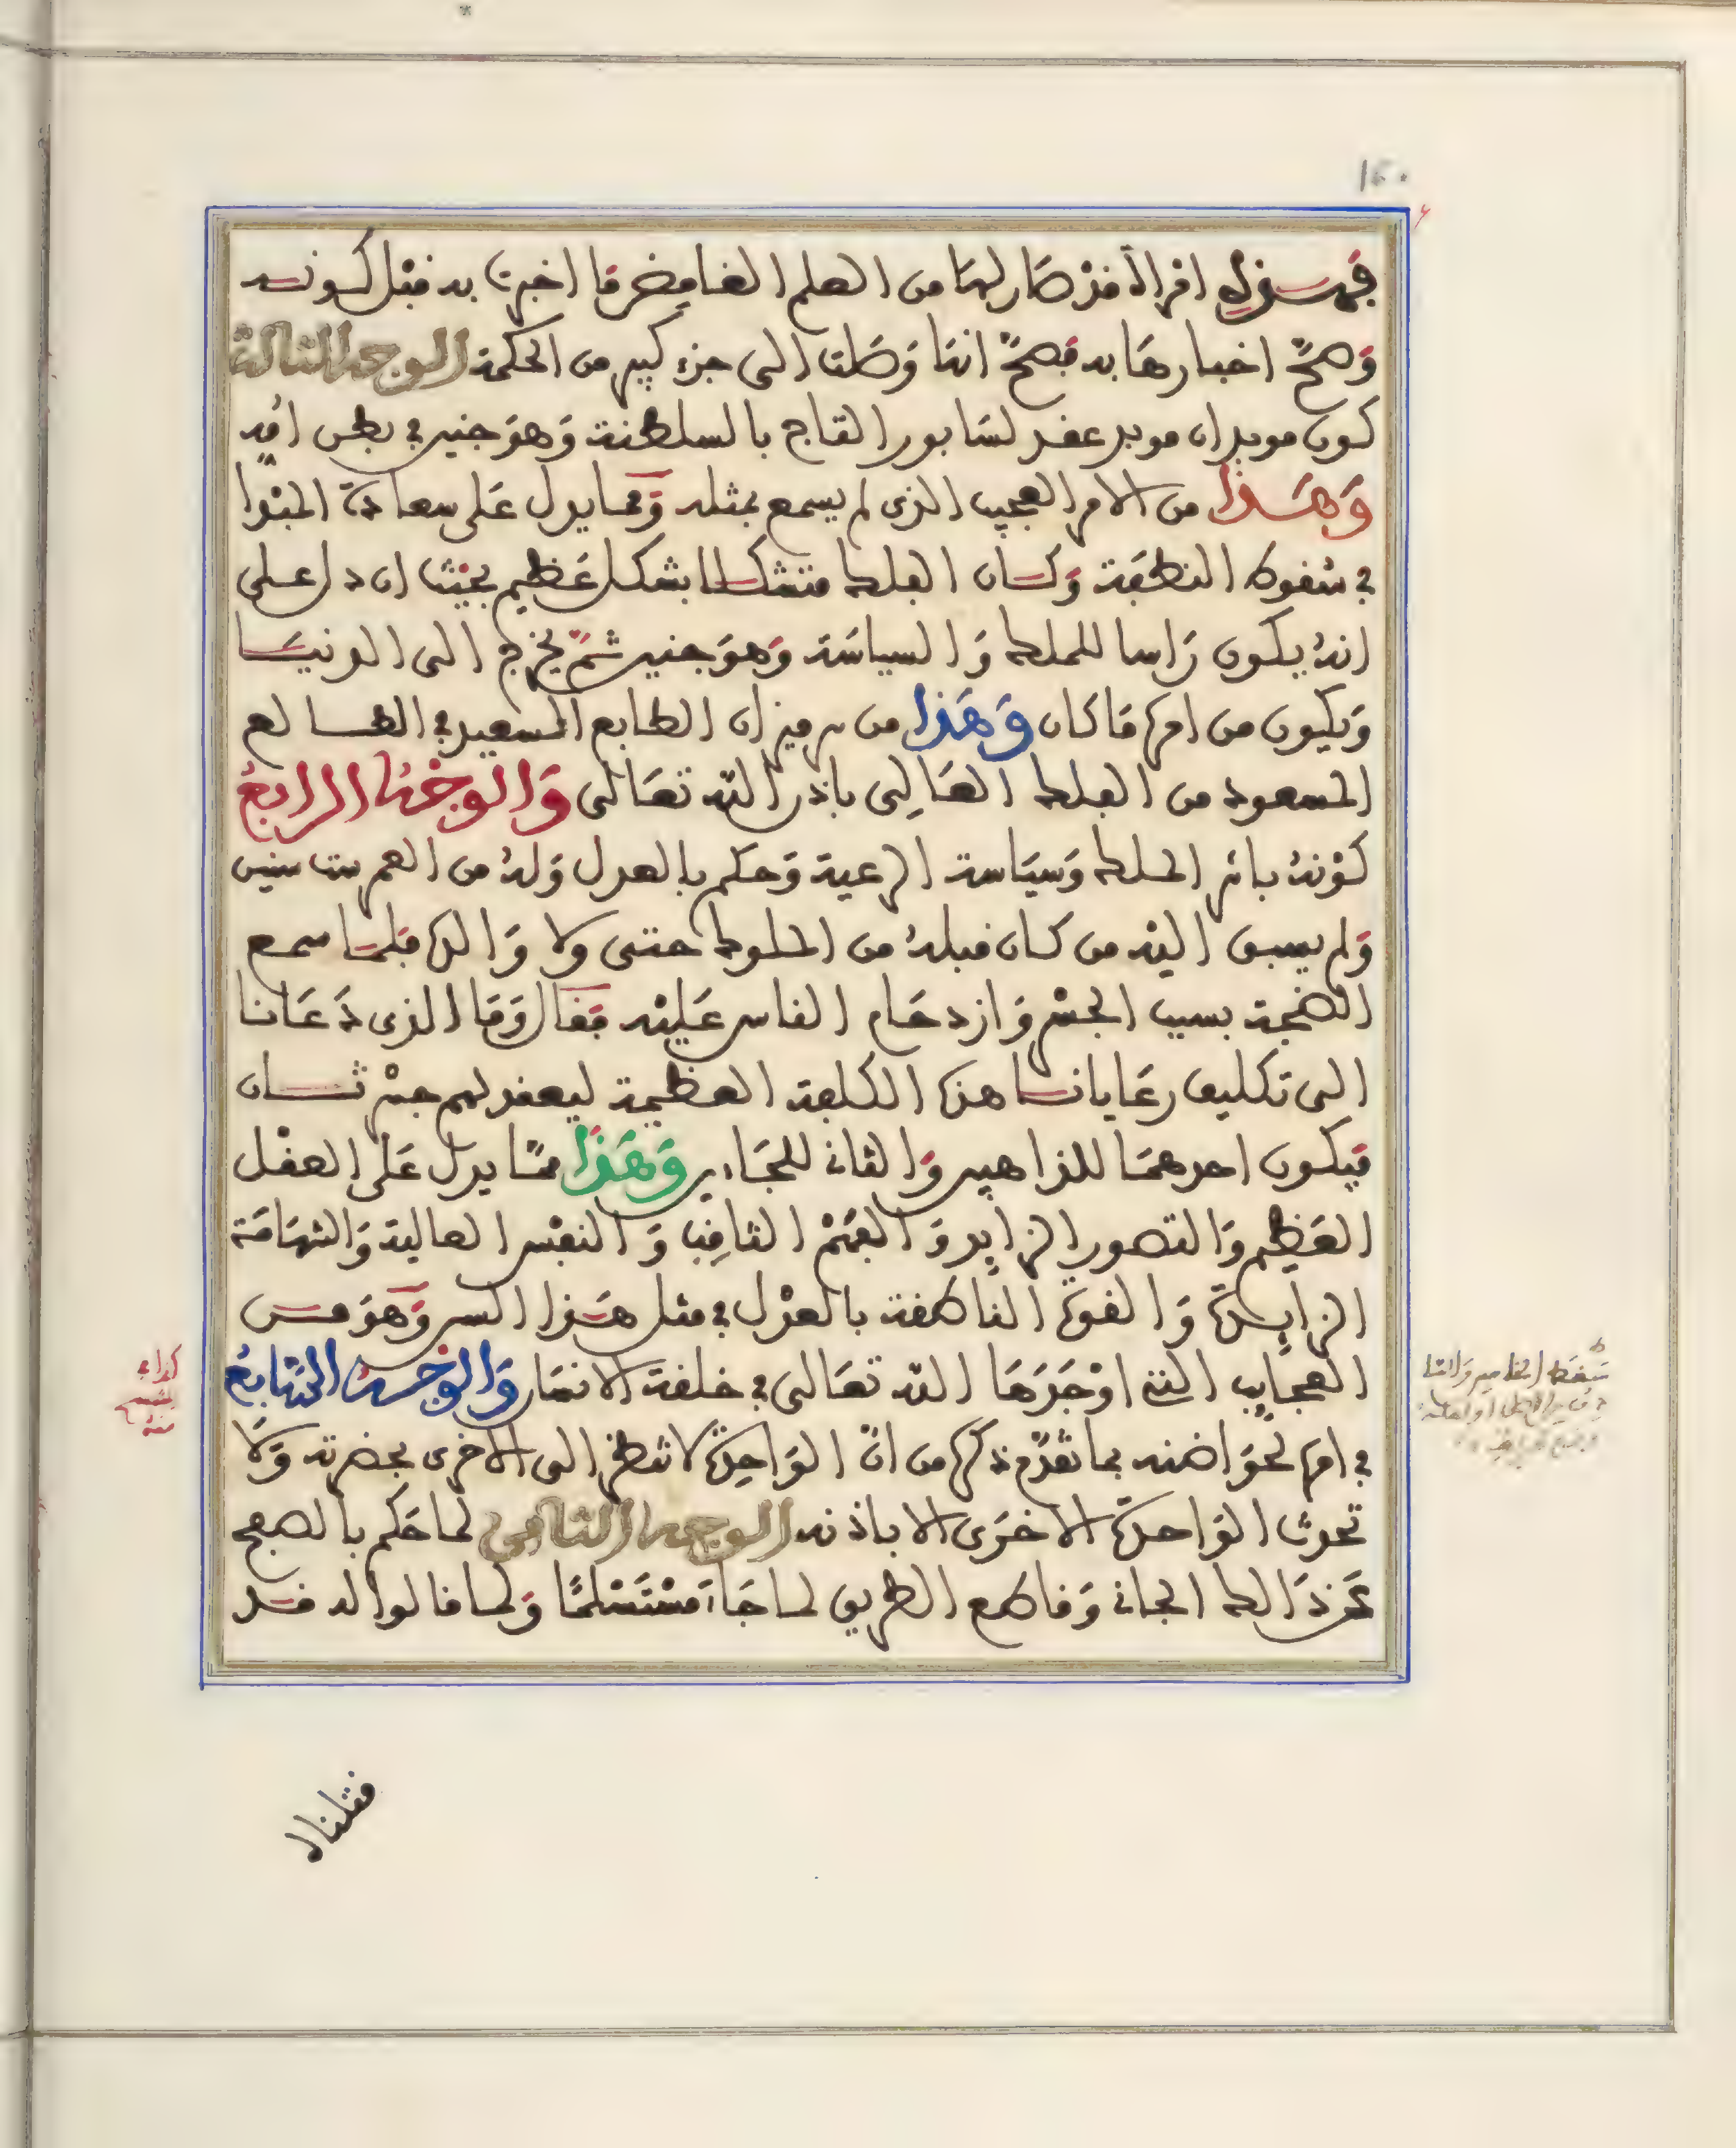 ١٤٠
فهذه امرأة قد صار لها من العلم الغامض ما اخبرت به قبل كونه
وصحّ اخبارها به فصحّ انها وصلت الى جزء كبير من الحكمة الوجه الثالث
كون موبدان موبد عقد لسابور التاج بالسلطنة وهو جنين في بطن امّه
وهذا من الامر العجيب الذي لم يسمع بمثله ومما يدل على سعادة المبتدا
في سقوط النطفة وكان الفلك متشكلا بشكل عظيم بحيث ان دل على
انه يكون راسا للملك والسياسة وهو جنين ثمّ يخرج الى الدنيا
ويكون من امره ما كان وهذا من الطابع السعيد في الطالع
المسعود من الفلك العالي باذن الله تعالى والوجه الرابع
كونه باشر الملك وسياسة الرعية وحكم بالعدل وله من العمر ست سنين
ولم يسبق اليه من كان قبله من الملوك حتى ولا والده فلما سمع
الضجة بسبب الجسر وازدحام الناس عليه فقال وما الذي دعانا
الى تكليف رعايانا هذه الكلفة العظيمة ليعقد لهم جسر ثان
فيكون احدهما للذاهبين والثاني للجايين وهذا ممّا يدل على العقل
العظيم والتصور الزايد والفهم الثاقب والنفس العالية والشهامة
الزايدة والقوة الناطقة بالعدل في مثل هذا السن وهو من
العجايب التي اوجدها الله تعالى في خلقة الانسان والوجه السابع
في امره لحواضنه بما تقدم ذكره من انّ الواحدة لا تنظر الى الاخرى بحضرته ولا
تحدث الواحدة الاخرى الا باذنه الوجه الثامن لما حكم بالصفح
عن ذالك الجاني وقاطع الطريق لما جاء مستسلمًا ولما قالوا له قد
سقط الخامس والسادس
كذا في
قتلنا